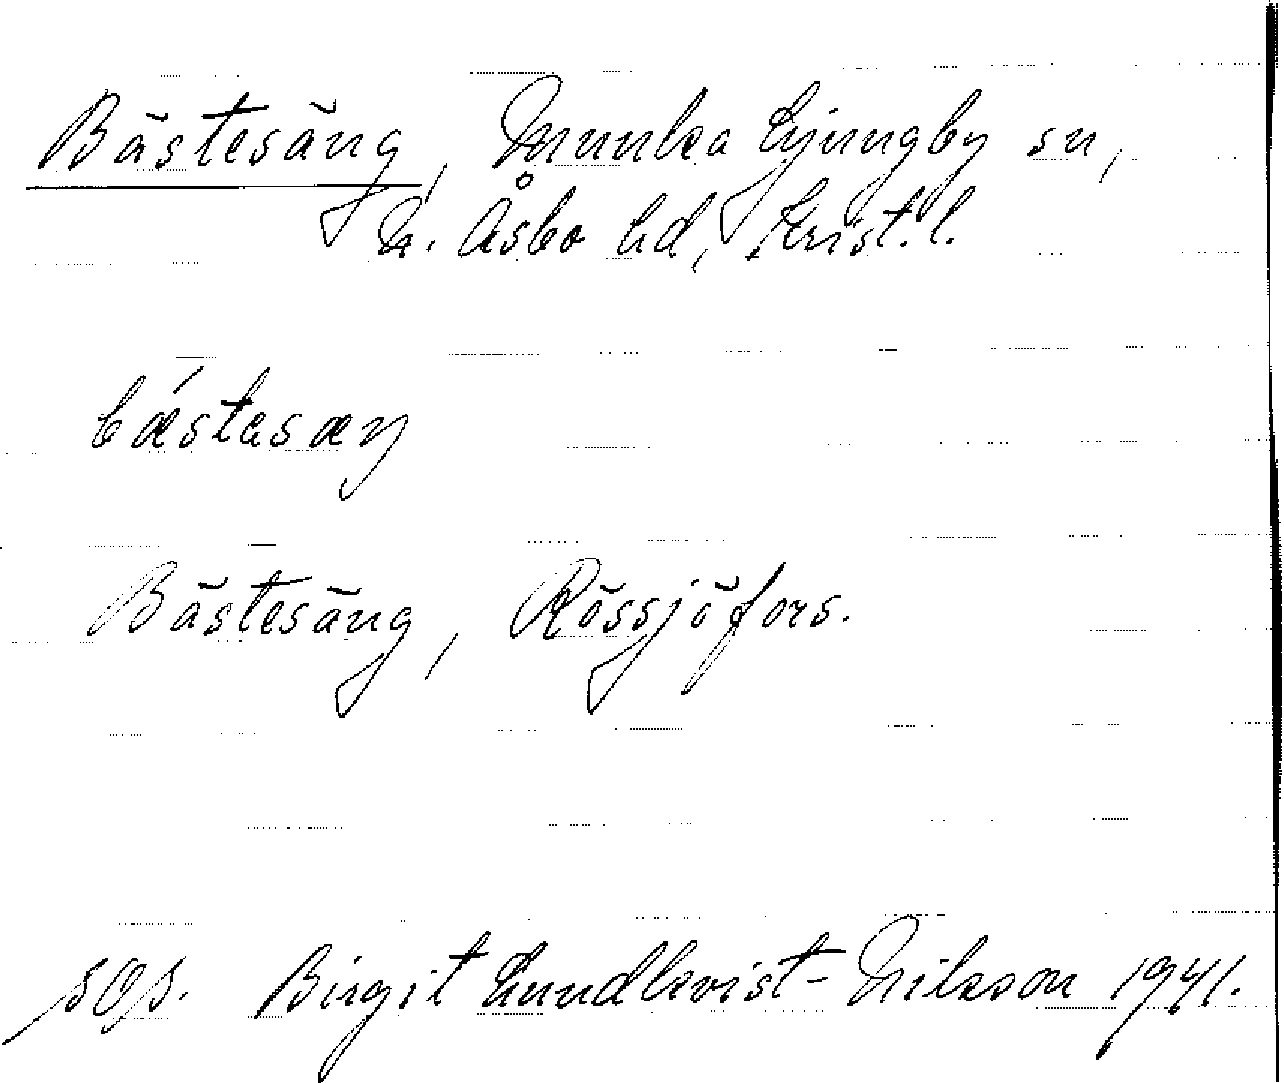 Bästesäng, Munka Ljungby sn,
N. Åsbo hd, Krist. l.
bǽstesæŋ
Bästesäng, Rössjöfors.
sos. Birgit Lundkvist-Nilsson 1941.